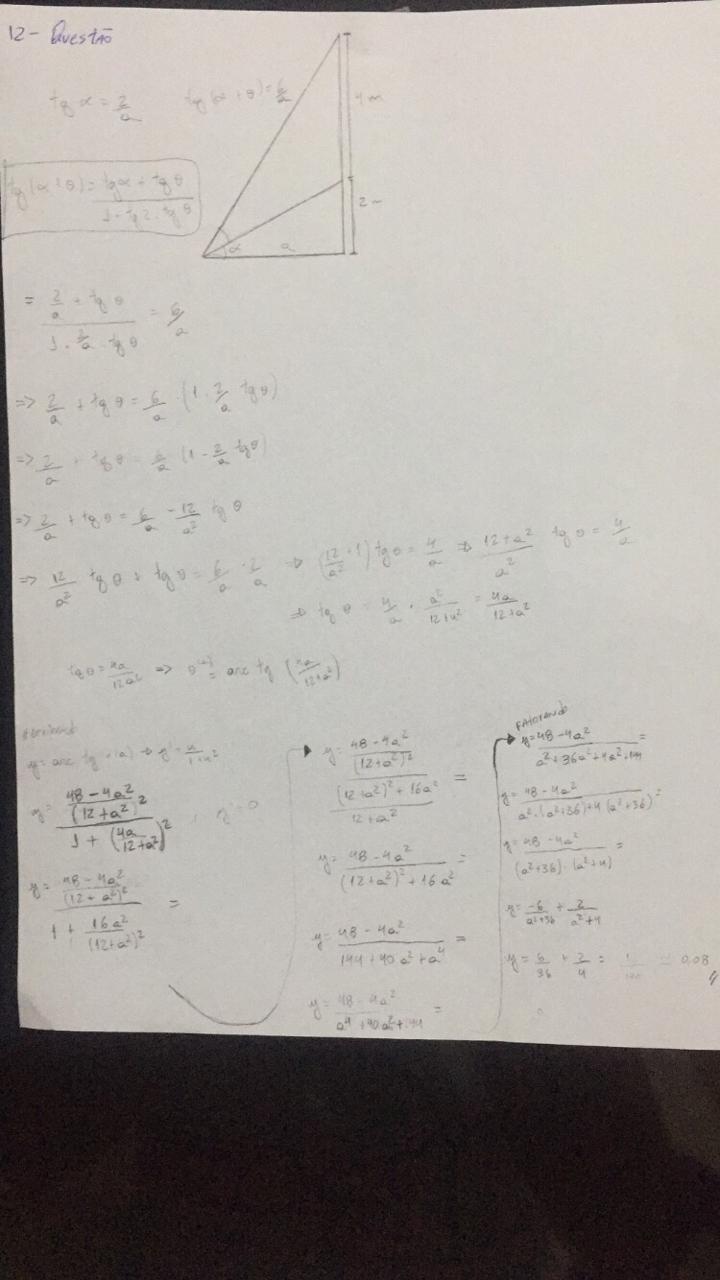 12 - Questão
tg α = 2/a
tg(α + θ) = 6/a
4 m
2 m
α
a
tg(α + θ) = (tgα + tg θ)/(1 - tg α · tg θ)
= (2/a + tg θ)/(1 - 2/a · tg θ) = 6/a
=> 2/a + tg θ = 6/a · (1 - 2/a tg θ)
=> 2/a + tg θ = 6/a (1 - 2/a tg θ)
=> 2/a + tg θ = 6/a - 12/a² tg θ
=> 12/a² tg θ + tg θ = 6/a - 2/a => (12/a² + 1) tg θ = 4/a => (12+a²)/a² tg θ = 4/a
=> tg θ = 4/a · a²/(12+a²) = 4a/(12+a²)
tg θ = 4a/(12+a²) => θ = arc tg (4a/(12+a²))
y = arc tg
y = ((48 - 4a²)/(12+a²)²)/(1 + (4a/(12+a²))²)
y = ((48 - 4a²)/(12+a²)²)/(1 + 16a²/(12+a²)²) =
y = ((48 - 4a²)/(12+a²)²)/(((12+a²)² + 16a²)/(12+a²)) =
y = (48 - 4a²)/((12+a²)² + 16a²) =
y = (48 - 4a²)/(144 + 40a² + a⁴) =
y = (48 - 4a²)/(a⁴ + 40a² + 144) =
Fatorando
y = (48 - 4a²)/(a² + 36a² + 4a² + 144) =
y = (48 - 4a²)/(a² · (a²+36) + 4(a²+36)) =
y = (48 - 4a²)/((a²+36) · (a²+4)) =
y = -6/(a²+36) + 2/(a²+4)
0,08